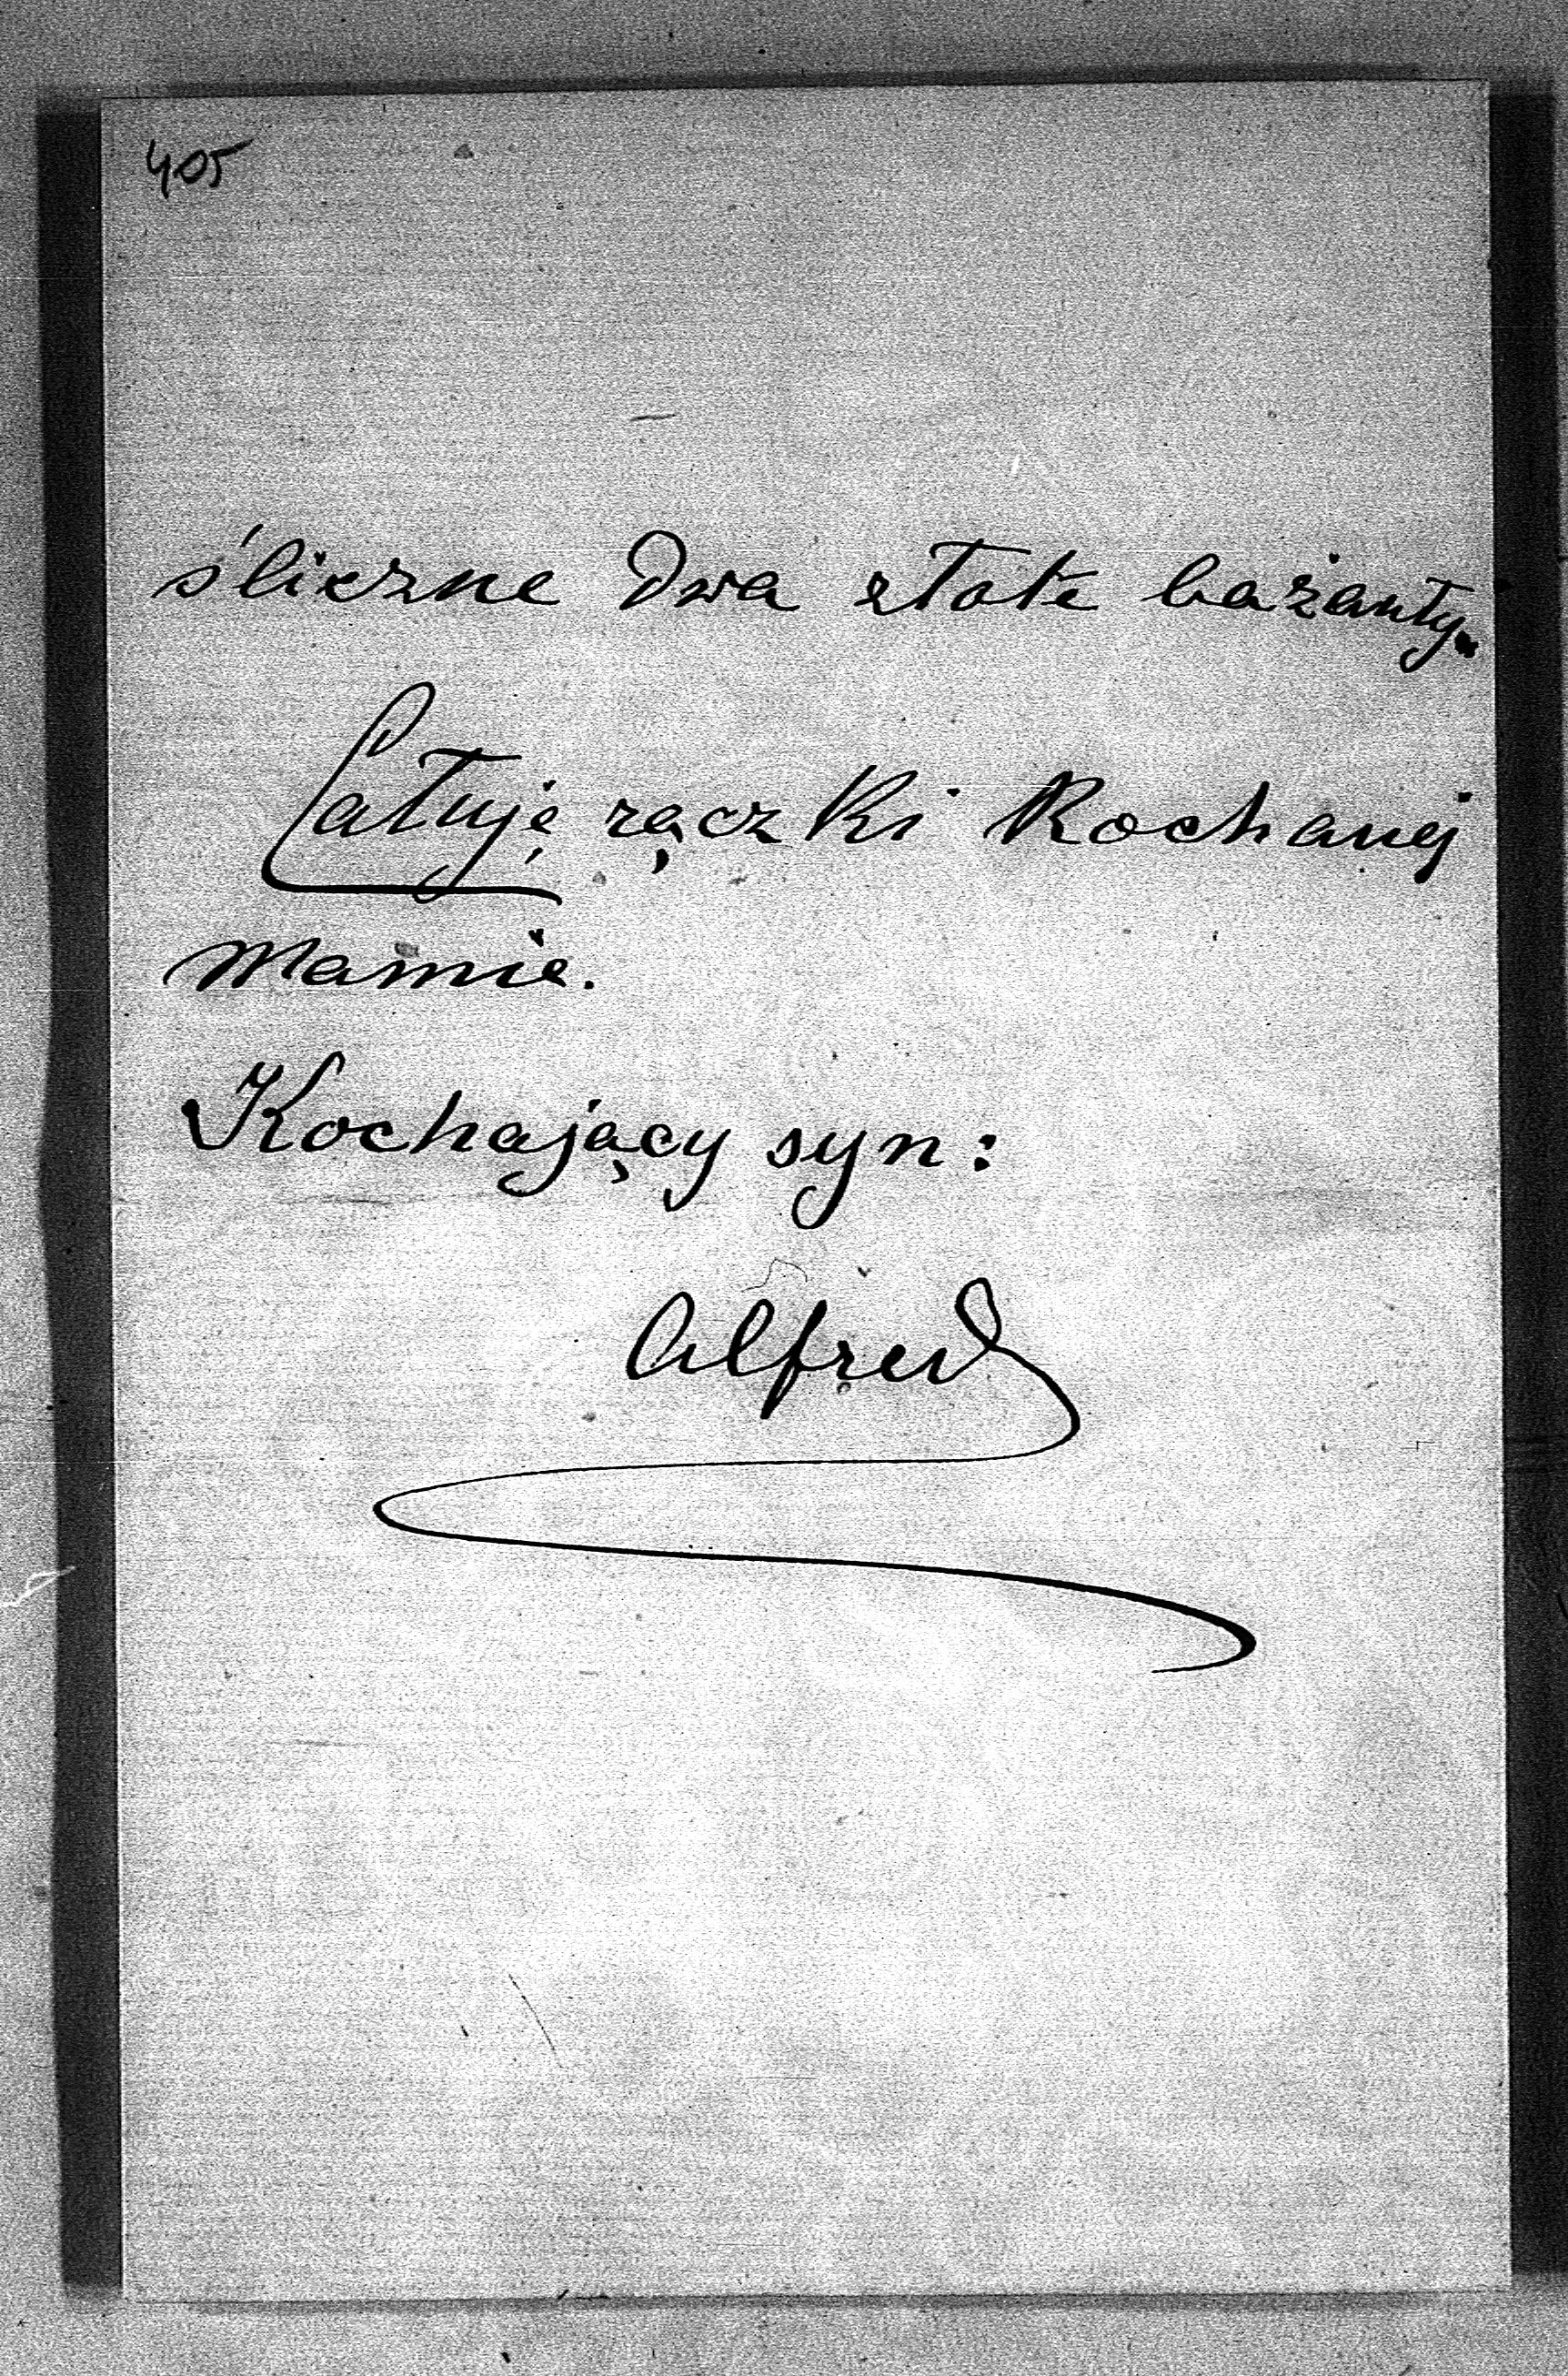 405
śliczne dwa złote bażanty.
Całuję rączki Kochanej
Mamie.
Kochający syn:
Alfred